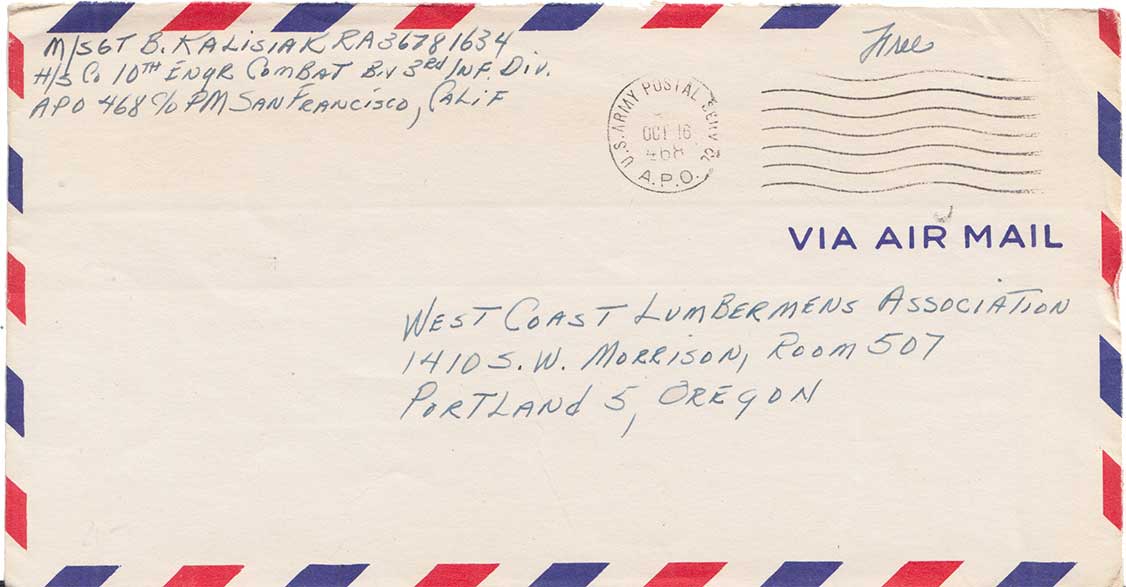 M/SGT B. KALISIAK RA36781634
H/S Co 10TH ENGR COMBAT BN 3RD INF. DIV.
APO 468 C/O PM SAN FRANCISCO, CALIF
Free
U.S. ARMY POSTAL SERVICE
OCT 16
468
A.P.O.
VIA AIR MAIL
WEST COAST LUMBERMENS ASSOCIATION
1410 S.W. MORRISON, ROOM 507
PORTLAND 5, OREGON